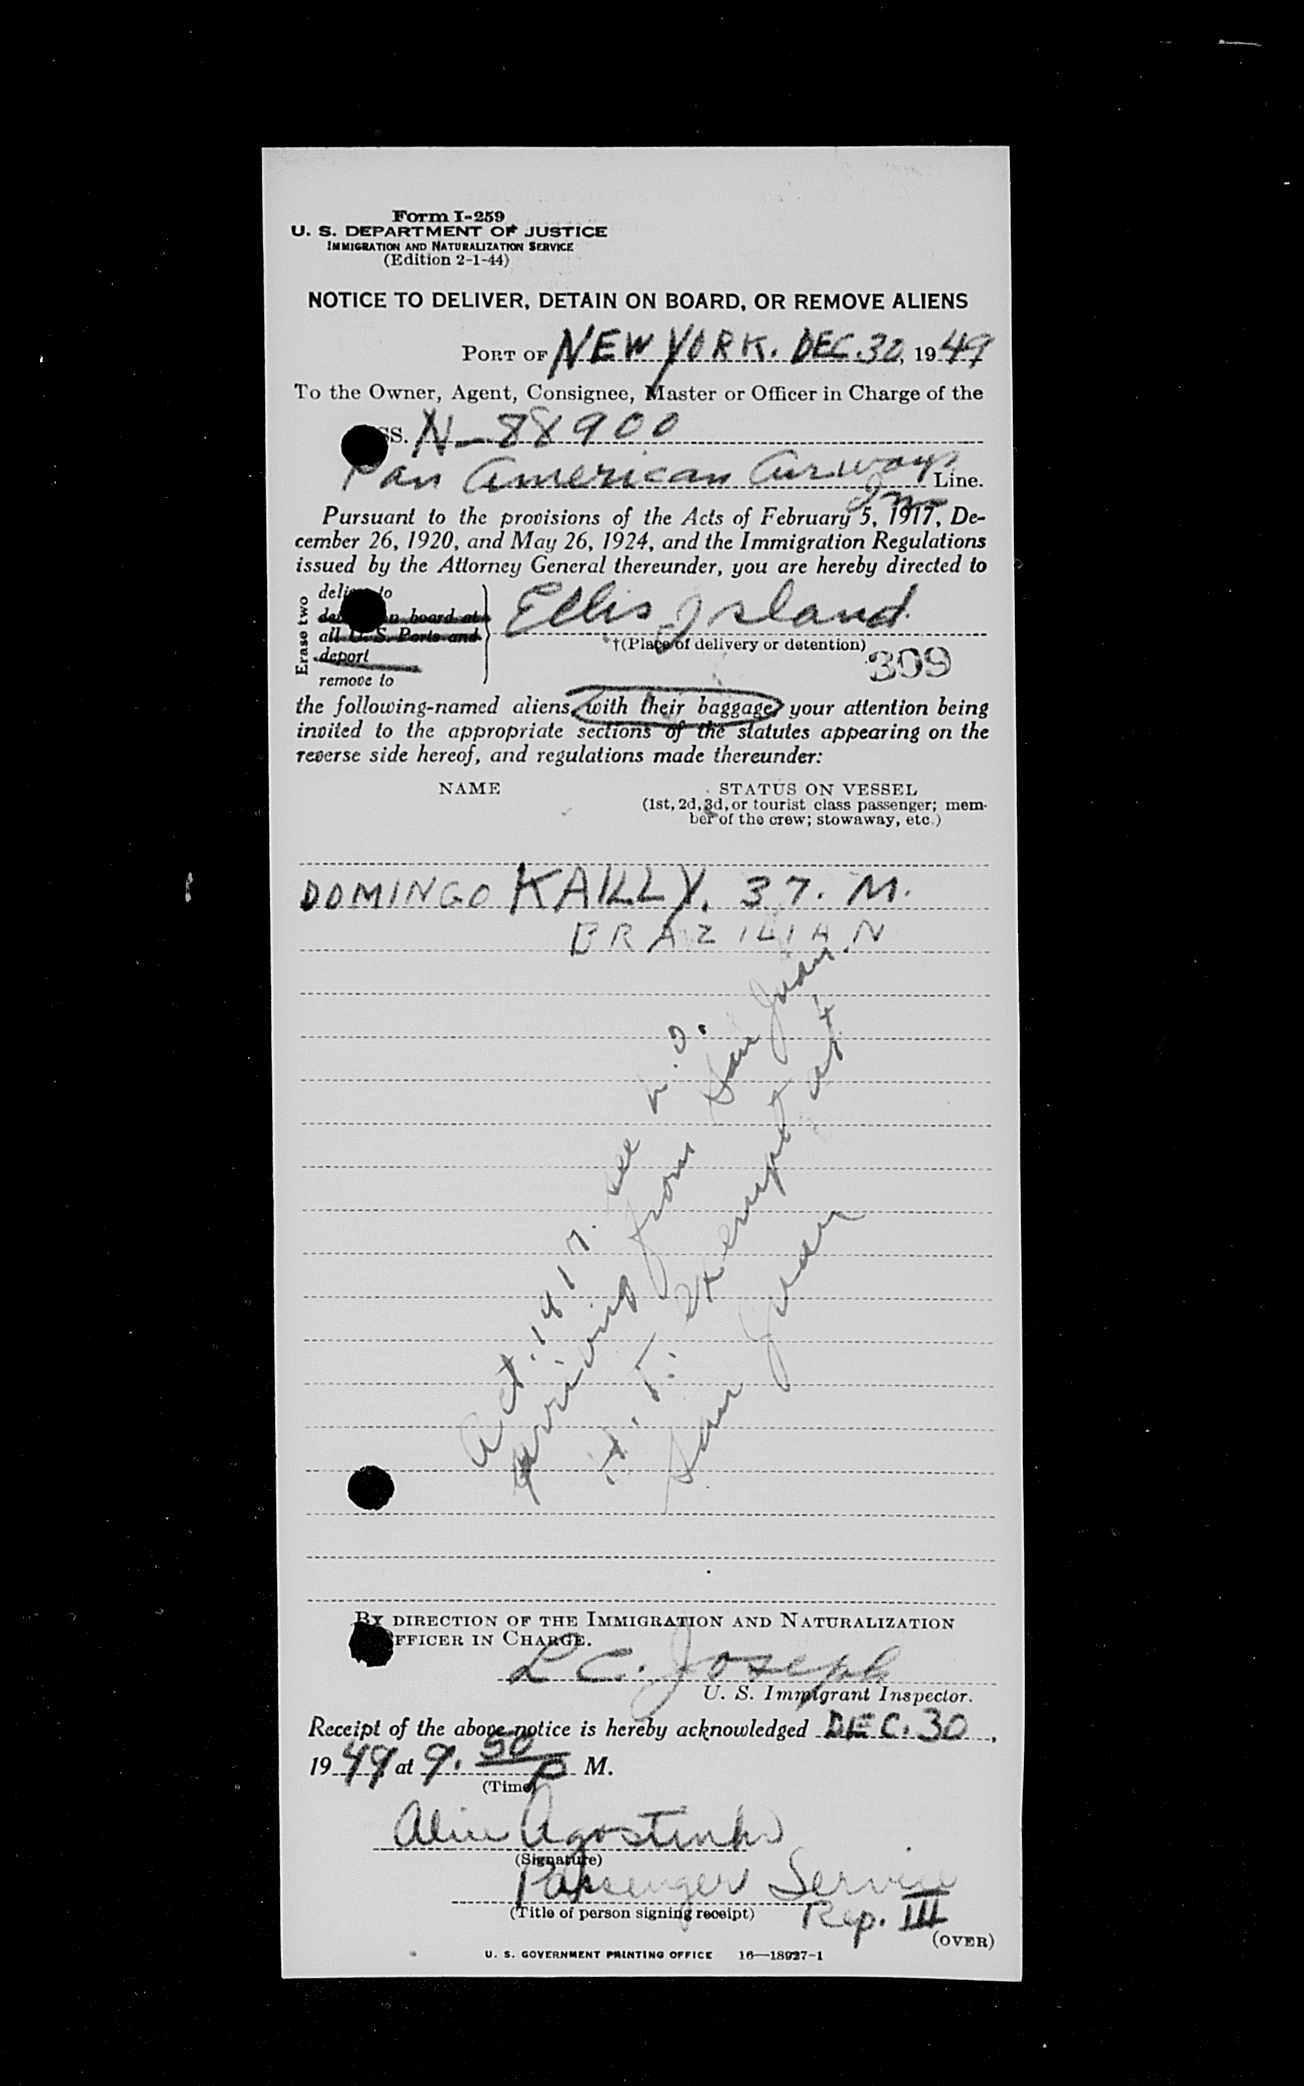 Form I-259
U. S. DEPARTMENT OF JUSTICE
IMMIGRATION AND NATURALIZATION SERVICE
(Edition 2-1-44)
NOTICE TO DELIVER, DETAIN ON BOARD, OR REMOVE ALIENS
PORT OF NEW YORK. DEC. 30, 1949
To the Owner, Agent, Consignee, Master or Officer in Charge of the
SS. N-88900
Pan American Airways Line.
Inc
Pursuant to the provisions of the Acts of February 5, 1917, De-
cember 26, 1920, and May 26, 1924, and the Immigration Regulations
issued by the Attorney General thereunder, you are hereby directed to
Erase two
deliver to
detain on board at
all U. S. Ports and
deport
remove to
Ellis Island
†(Place of delivery or detention)
309
the following-named aliens, with their baggage, your attention being
invited to the appropriate sections of the statutes appearing on the
reverse side hereof, and regulations made thereunder:
NAME
STATUS ON VESSEL
(1st, 2d, 3d, or tourist class passenger; mem-
ber of the crew; stowaway, etc.)
DOMINGO KAILLY. 37. M.
BRAZILIAN
Act. 1917.
Arriving from San Juan
H. T. exempt at
San Juan
BY DIRECTION OF THE IMMIGRATION AND NATURALIZATION
OFFICER IN CHARGE.
L C. Joseph
U. S. Immigrant Inspector.
Receipt of the above notice is hereby acknowledged DEC. 30,
1949 at 9.50 P M.
(Time)
(Signature)
Passenger Service
(Title of person signing receipt) Rep. III
(OVER)
U. S. GOVERNMENT PRINTING OFFICE 16—18927-1